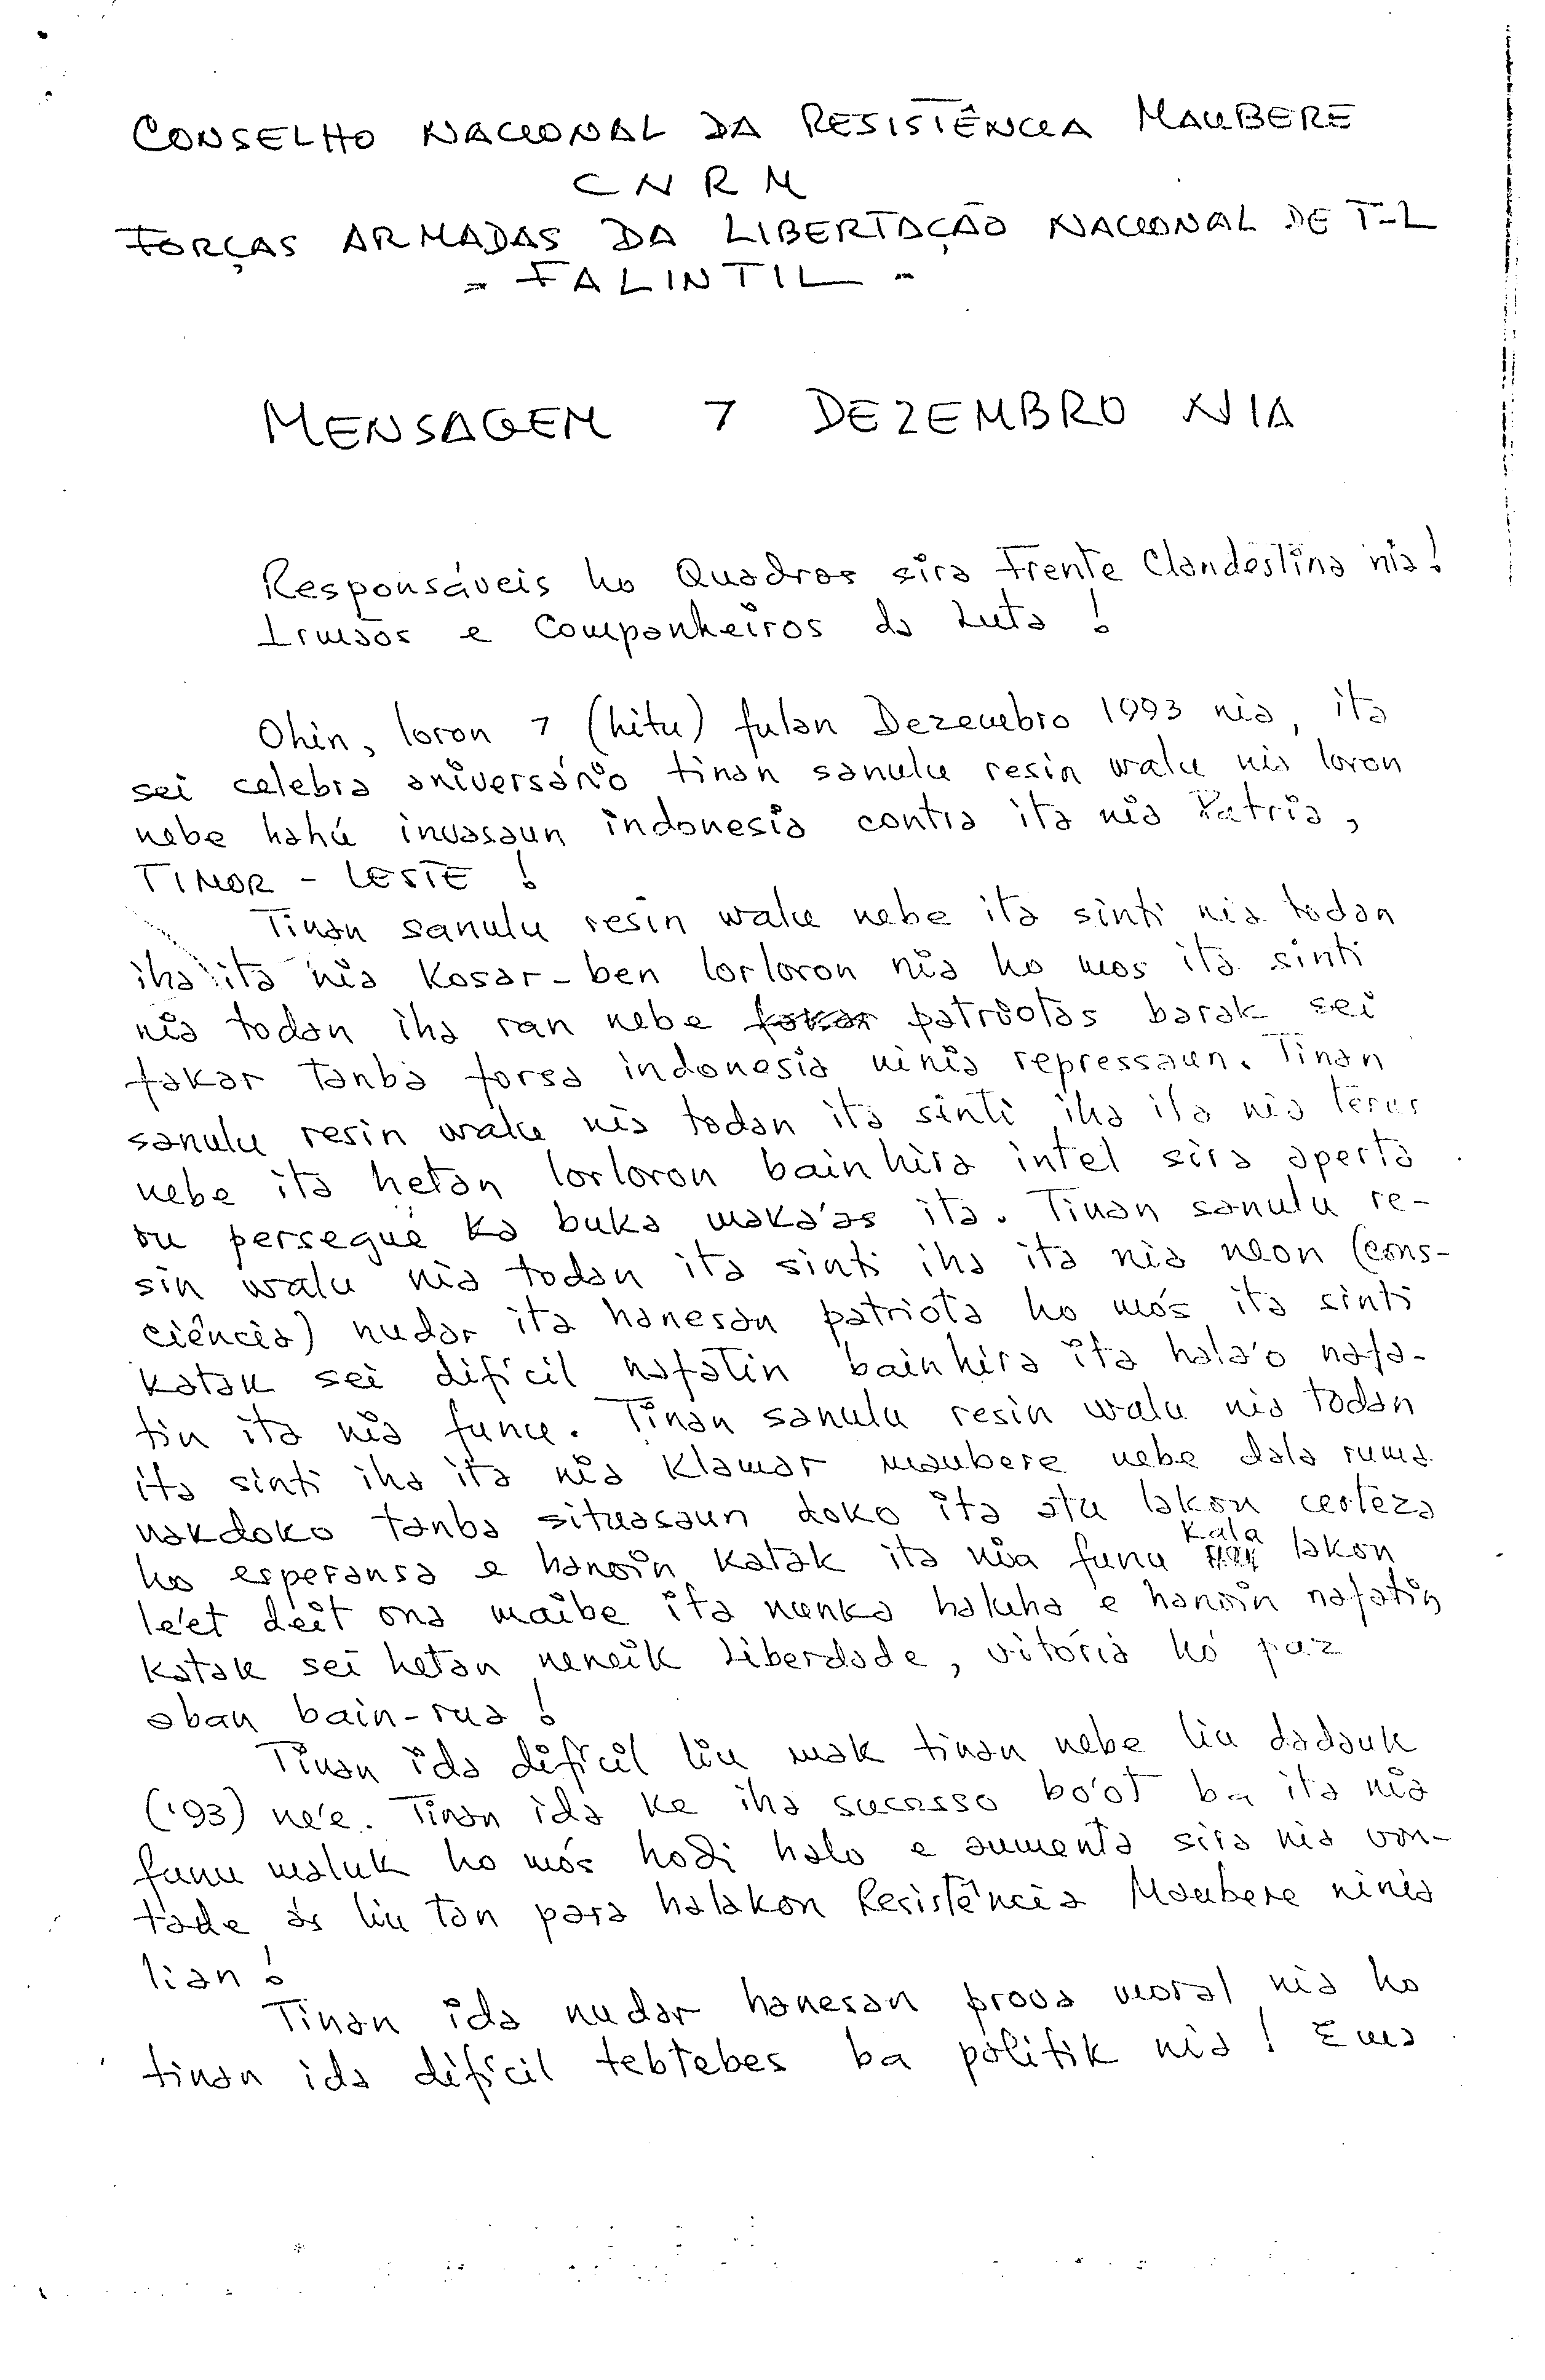 CONSELHO NACIONAL DA RESISTÊNCIA MAUBERE
CNRM
FORÇAS ARMADAS DA LIBERTAÇÃO NACIONAL DE T-L
- FALINTIL -
MENSAGEM 7 DEZEMBRO NIA
Responsáveis ho Quadros sira Frente Clandestina nia!
Irmãos e Companheiros da Luta!
Ohin, loron 7 (hitu) fulan Dezembro 1993 nia, ita
sei celebra aniversário tinan sanulu resin walu nia loron
nebe hahú invasaun indonesia contra ita nia Patria,
TIMOR - LESTE!
Tinan sanulu resin walu nebe ita sinti nia todan
iha ita nia kosar-ben lorloron nia ho mos ita sinti
nia todan iha ran nebe patriotas barak sei
fakar tanba forsa indonesia ninia repressaun. Tinan
sanulu resin walu nia todan ita sinti iha ita nia terus
nebe ita hetan lorloron bainhira intel sira aperta
ou persegue ka buka maka'as ita. Tinan sanulu re-
sin walu nia todan ita sinti iha ita nia neon (cons-
ciência) nudar ita hanesan patriota ho mós ita sinti
katak sei difícil nafatin bainhira ita hala'o nafa-
tin ita nia funu. Tinan sanulu resin walu nia todan
ita sinti iha ita nia klamar maubere nebe dala ruma
nakdoko tanba situasaun doko ita atu lakon certeza
ho esperansa e hanoin katak ita nia funu kala lakon
le'et deit ona maibe ita nunka haluha e hanoin nafatin
katak sei hetan neneik Liberdade, vitória ho paz
aban bain-rua!
Tinan ida difícil liu mak tinan nebe liu dadauk
('93) ne'e. Tinan ida ke iha sucesso bo'ot ba ita nia
funu maluk ho mós hodi halo e aumenta sira nia von-
tade ás liu tan para halakon Resistência Maubere ninia
lian!
Tinan ida nudar hanesan prova moral nia ho
tinan ida difícil tebtebes ba politik nia! Ema